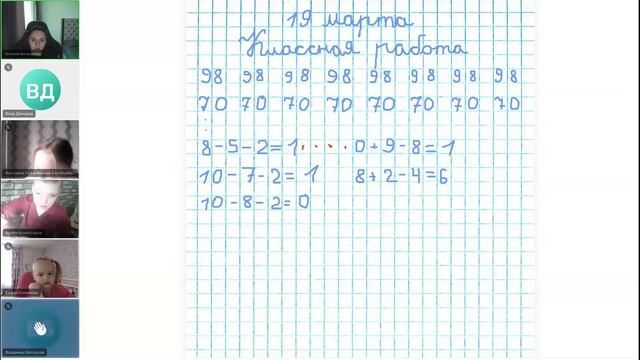 19 марта
Классная работа
98 98 98 98 98 98 98 98
70 70 70 70 70 70 70 70
8-5-2=1 0+9-8=1
10-7-2=1 8+2-4=6
10-8-2=0
ВД
Влад Демидов
Владимир Белоусов